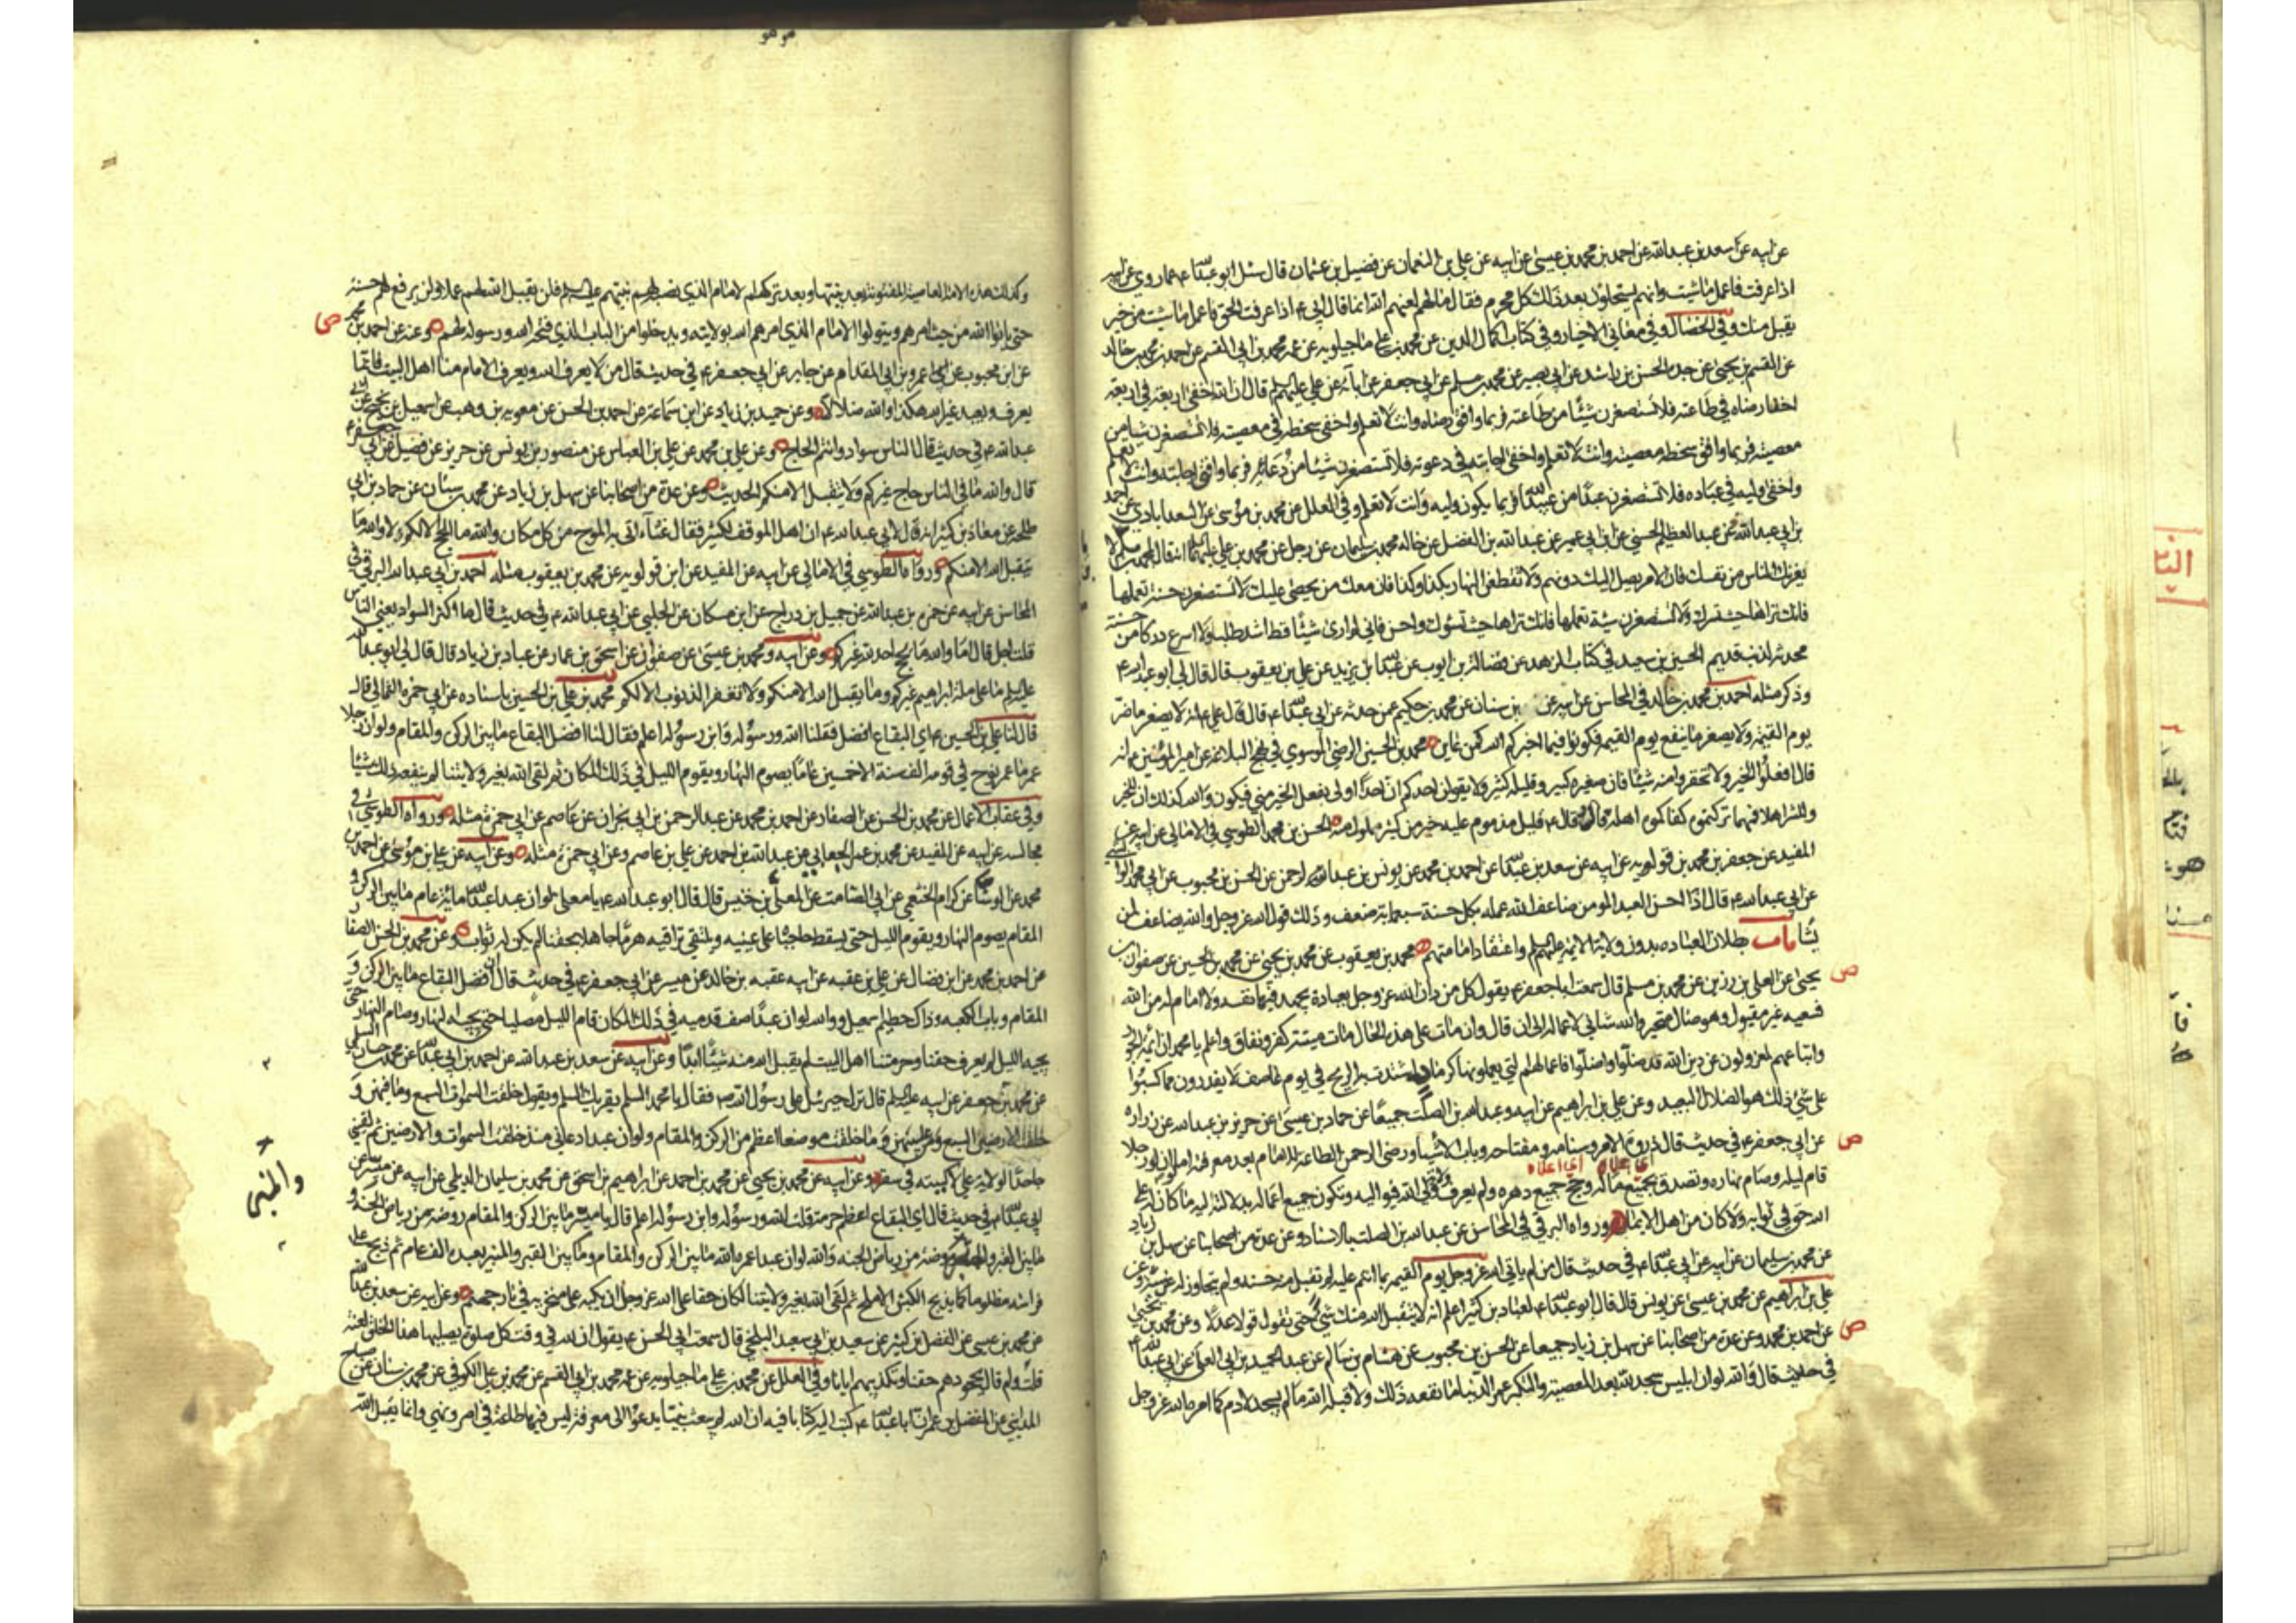 عن ابيه عن سعد بن عبدالله عن احمد بن محمد بن عيسى عن ابيه عن علي بن النعمان عن فضيل بن عثمان قال سئل ابو عبدالله ع عما روي عن ابيه
اذا عرفت فاعمل ما شئت وانهم يستحلون بعد ذلك كل محرم فقال ما لهم لعنهم الله انما قال ابي ع اذا عرفت الحق فاعمل ما شئت من خير
يقبل منك وفي الخصال وفي معاني الاخبار وفي كتاب اكمال الدين عن محمد بن علي ماجيلويه عن عمه محمد بن ابي القسم عن احمد بن محمد بن خالد
عن القسم بن يحيى عن جده الحسن بن راشد عن ابي بصير عن محمد بن مسلم عن ابي جعفر عن ابائه عن علي عليهم قال ان الله اخفى اربعة في اربعة
اخفى رضاه في طاعته فلا تستصغرن شيئا من طاعته فربما وافق رضاه وانت لا تعلم واخفى سخطه في معصيته فلا تستصغرن شيئا من
معصيته فربما وافق سخطه معصيته وانت لا تعلم واخفى اجابته في دعوته فلا تستصغرن شيئا من دعائه فربما وافق اجابته وانت لا تعلم
واخفى وليه في عباده فلا تستصغرن عبدا من عبيد الله فربما يكون وليه وانت لا تعلم وفي العلل عن محمد بن موسى عن السعدابادي عن احمد
بن ابي عبدالله عن عبد العظيم الحسني عن ابن ابي عمير عن عبدالله بن الفضل عن خاله محمد بن سليمان عن رجل عن محمد بن علي عليهما انه قال لمحمد بن مسلم لا
يغرنك الناس من نفسك فان الامر يصل اليك دونهم ولا تقطعن النهار بكذا وكذا فان معك من يحصى عليك لا تستصغرن حسنة تعملها
فانك تراها حيث تسرك ولا تستصغرن سيئة تعملها فانك تراها حيث تسوئك واحسن فاني لم ار شيئا قط اشد طلبا ولا اسرع دركا من حسنة
محدثة لذنب قديم الحسين بن سعيد في كتاب الزهد عن فضالة بن ايوب عن عبدالله بن يزيد عن علي بن يعقوب قال قال لي ابو عبدالله ع
وذكر مثله احمد بن محمد بن خالد في المحاسن عن ابيه عن بن سنان عن محمد بن حكيم عمن حدثه عن ابي عبدالله ع قال قال علي ع لا يصغر ما ضر
يوم القيمة ولا يصغر ما ينفع يوم القيمة فكونوا فيما اخبركم الله كمن عاين محمد بن الحسين الرضي الموسوي في نهج البلاغة عن امير المؤمنين ع انه
قال افعلوا الخير ولا تحقروا منه شيئا فان صغيره كبير وقليله كثير ولا يقولن احدكم ان احدا اولى بفعل الخير مني فيكون والله كذلك ان للخير
وللشر اهلا فمهما تركتموه كفاكموه اهله قال وقال ع قليل مدوم عليه خير من كثير مملول منه الحسن بن محمد الطوسي في الامالي عن ابيه عن
المفيد عن جعفر بن محمد بن قولويه عن ابيه عن سعد بن عبدالله عن احمد بن محمد عن يونس بن عبد الرحمن عن الحسن بن محبوب عن ابي محمد الوابشي
عن ابي عبدالله ع قال اذا احسن العبد المومن ضاعف الله عمله بكل حسنة سبعماية ضعف وذلك قول الله عز وجل والله يضاعف لمن
يشاء باب بطلان العباده بدون ولاية الائمة عليهم واعتقاد امامتهم محمد بن يعقوب عن محمد بن يحيى عن محمد بن الحسين عن صفوان بن
يحيى عن العلى بن رزين عن محمد بن مسلم قال سمعت ابا جعفر ع يقول كل من دان الله عز وجل بعبادة يجهد فيها نفسه ولا امام له من الله
فسعيه غير مقبول وهو ضال متحير والله شاني لاعماله الى ان قال وان مات على هذه الحال مات ميتة كفر ونفاق واعلم يا محمد ان ائمة الجور
واتباعهم لمعزولون عن دين الله قد ضلوا واضلوا فاعمالهم التي يعملونها كرماد اشتدت به الريح في يوم عاصف لا يقدرون مما كسبوا
على شئ ذلك هو الضلال البعيد وعن علي بن ابراهيم عن ابيه وعبدالله بن الصلت جميعا عن حماد بن عيسى عن حريز بن عبدالله عن زراره
عن ابي جعفر ع في حديث قال ذروة الامر وسنامه ومفتاحه وباب الاشياء ورضى الرحمن الطاعة للامام بعد معرفته اما لو ان رجلا
قام ليله وصام نهاره وتصدق بجميع ماله وحج جميع دهره ولم يعرف ولاية ولي الله فيواليه وتكون جميع اعماله بدلالته اليه ما كان له على
الله حق في ثوابه ولا كان من اهل الايمان ورواه البرقي في المحاسن عن عبدالله بن الصلت بالاسناد وعن عدة من اصحابنا عن سهل بن زياد
عن محمد بن سليمان عن ابيه عن ابي عبدالله ع في حديث قال من لم يات الله عز وجل يوم القيمة بما انتم عليه لم تقبل منه حسنة ولم يتجاوز له عن سيئة وعن
علي بن ابراهيم عن محمد بن عيسى عن يونس قال قال ابو عبدالله ع لعباد بن كثير اعلم انه لا يتقبل الله منك شئ حتى تقول قولا عدلا وعن محمد بن يحيى
عن احمد بن محمد وعن عدة من اصحابنا عن سهل بن زياد جميعا عن الحسن بن محبوب عن هشام بن سالم عن عبد الحميد بن ابي العلا عن ابي عبدالله ع
في حديث قال والله لو ان ابليس سجد لله بعد المعصية والتكبر عمر الدنيا ما نفعه ذلك ولا قبله الله ما لم يسجد لادم كما امره الله عز وجل
وكذلك هذه الامة العاصية المفتونة بعد نبيها وبعد تركهم الامام الذي نصبه لهم نبيهم فلن يقبل الله لهم عملا ولن يرفع لهم حسنة
حتى ياتوا الله من حيث امرهم ويتولوا الامام الذي امرهم الله بولايته ويدخلوا من الباب الذي فتحه الله ورسوله لهم وعنه عن احمد بن محمد
عن ابن محبوب عن عمرو بن ابي المقدام عن جابر عن ابي جعفر ع في حديث قال من لا يعرف الله ويعرف الامام منا اهل البيت فانما
يعرف ويعبد غير الله هكذا والله ضلالا وعن حميد بن زياد عن ابن سماعة عن احمد بن الحسن عن معويه بن وهب عن اسمعيل بن نجيح عن ابي
عبدالله ع في حديث قال الناس سواد وانتم الحاج وعن علي بن محمد عن علي بن العباس عن منصور بن يونس عن حريز عن فضيل عن ابي جعفر ع
قال والله ما في الناس حاج غيركم ولا يتقبل الا منكم الحديث وعن عدة من اصحابنا عن سهل بن زياد عن محمد بن سنان عن حماد بن ابي
طلحة عن معاذ بن كثير انه قال لابي عبدالله ع ان اهل الموقف لكثير فقال غثاء اتى به الموج من كل مكان والله ما الحج الا لكم ولا والله ما
يتقبل الله الا منكم ورواه الطوسي في الامالي عن ابيه عن المفيد عن ابن قولويه عن محمد بن يعقوب مثله احمد بن ابي عبدالله البرقي في
المحاسن عن ابيه عن حمزة بن عبدالله عن جميل بن دراج عن ابن مسكان عن الحلبي عن ابي عبدالله ع في حديث قال ما اكثر السواد يعني الناس
قلت اجل قال اما والله ما يحج احد لله غيركم وعن ابيه ومحمد بن عيسى عن صفوان عن اسحق بن عمار عن عباد بن زياد قال قال لي ابو عبدالله
عليه السلم ما على ملة ابراهيم غيركم وما يقبل الله الا منكم ولا تغفر الذنوب الا لكم محمد بن علي بن الحسين باسناده عن ابي حمزة الثمالي قال
قال لنا علي بن الحسين ع اي البقاع افضل فقلنا الله ورسوله وابن رسوله اعلم فقال لنا افضل البقاع ما بين الركن والمقام ولو ان رجلا
عمر ما عمر نوح في قومه الف سنة الا خمسين عاما يصوم النهار ويقوم الليل في ذلك المكان ثم لقى الله بغير ولايتنا لم ينفعه ذلك شيئا
وفي عقاب الاعمال عن محمد بن الحسن عن الصفار عن احمد بن محمد عن عبد الرحمن بن ابي نجران عن عاصم عن ابي حمزة مثله ورواه الطوسي في
مجالسه عن ابيه عن المفيد عن محمد بن عمر الجعابي عن عبدالله بن احمد عن علي بن عاصم وعن ابي حمزة مثله وعن ابيه عن علي بن موسى عن احمد بن
محمد عن الوشا عن كرام الخثعمي عن ابي الصامت عن المعلى بن خنيس قال قال ابو عبدالله ع يا معلى لو ان عبدا عبد الله ماية عام ما بين الركن و
المقام يصوم النهار ويقوم الليل حتى يسقط حاجباه على عينيه ويلتقي تراقيه هرما جاهلا بحقنا لم يكن له ثواب وعن محمد بن الحسن الصفار
عن احمد بن محمد عن ابن فضال عن علي بن عقبه عن ابيه عقبه بن خالد عن ميسر عن ابي جعفر ع في حديث قال ان افضل البقاع ما بين الركن و
المقام وباب الكعبه وذاك حطيم اسمعيل ووالله لو ان عبدا صف قدميه في ذلك المكان قام الليل مصليا حتى يجيئه النهار وصام النهار حتى
يجيه الليل لم يعرف حقنا وحرمتنا اهل البيت لم يقبل الله منه شيئا ابدا وعن ابيه عن سعد بن عبدالله عن احمد بن ابي عبدالله عن محمد بن حسان السلمي
عن محمد بن جعفر عن ابيه عليه السلم قال نزل جبرئيل على رسول الله ص فقال يا محمد السلم يقرئك السلم ويقول خلقت السموات السبع وما فيهن و
خلقت الارضين السبع ومن عليهن وما خلقت موضعا اعظم من الركن والمقام ولو ان عبدا دعاني منذ خلقت السموات والارضين ثم لقيني
جاحدا لولاية علي لاكببته في سقر وعن ابيه عن محمد بن يحيى عن محمد بن احمد عن ابراهيم بن اسحق عن محمد بن سليمان الديلمي عن ابيه عن ميسر عن
ابي عبدالله ع في حديث قال اي البقاع اعظم حرمة قلت الله ورسوله وابن رسوله اعلم قال يا ميسر ما بين الركن والمقام روضة من رياض الجنة و
ما بين القبر والمنبر روضة من رياض الجنه والله لو ان عبدا عمره الله ما بين الركن والمقام وما بين القبر والمنبر يعبده الف عام ثم ذبح على
فراشه مظلوما كما يذبح الكبش الاملح ثم لقى الله بغير ولايتنا لكان حقا على الله عز وجل ان يكبه على منخريه في نار جهنم وعن ابيه عن سعد بن عبدالله
عن محمد بن عيسى عن الفضل بن كثير عن سعيد بن ابي سعيد البلخي قال سمعت ابي الحسن ع يقول ان لله في وقت كل صلوة يصليها هذا الخلق لعنة
قلت ولم قال بجحودهم حقنا وتكذيبهم ايانا وفي العلل عن محمد بن علي ماجيلويه عن عمه محمد بن ابي القسم عن محمد بن علي الكوفي عن محمد بن سنان عن صباح
المدايني عن المفضل بن عمر ان ابا عبدالله ع كتب اليه كتابا فيه ان الله لم يبعث نبيا يدعو الى معرفة ليس فيها طاعة في امر ونهي وانما يقبل الله
والمنبر